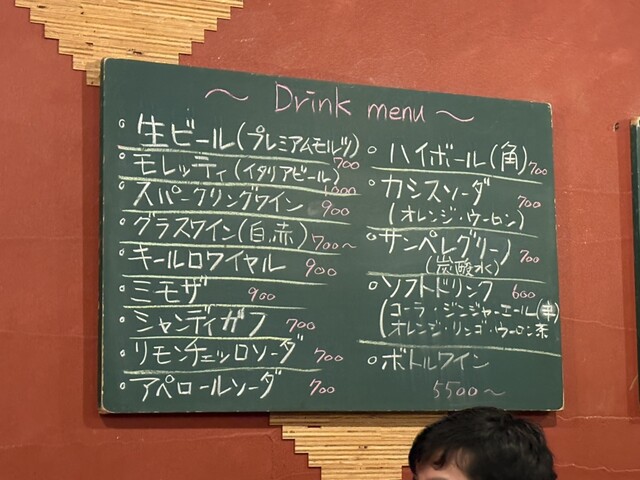 〜 Drink menu 〜
• 生ビール(プレミアムモルツ) 700
• モレッティ(イタリアビール) 1000
• スパークリングワイン 900
• グラスワイン(白,赤) 700〜
• キールロワイヤル 900
• ミモザ 900
• シャンディガフ 700
• リモンチェッロソーダ 700
• アペロールソーダ 700
• ハイボール(角) 700
• カシスソーダ 700
(オレンジ・ウーロン)
• サンペレグリーノ 700
(炭酸水)
• ソフトドリンク 600
(コーラ・ジンジャーエール(辛)
オレンジ・リンゴ・ウーロン茶
• ボトルワイン
5500〜